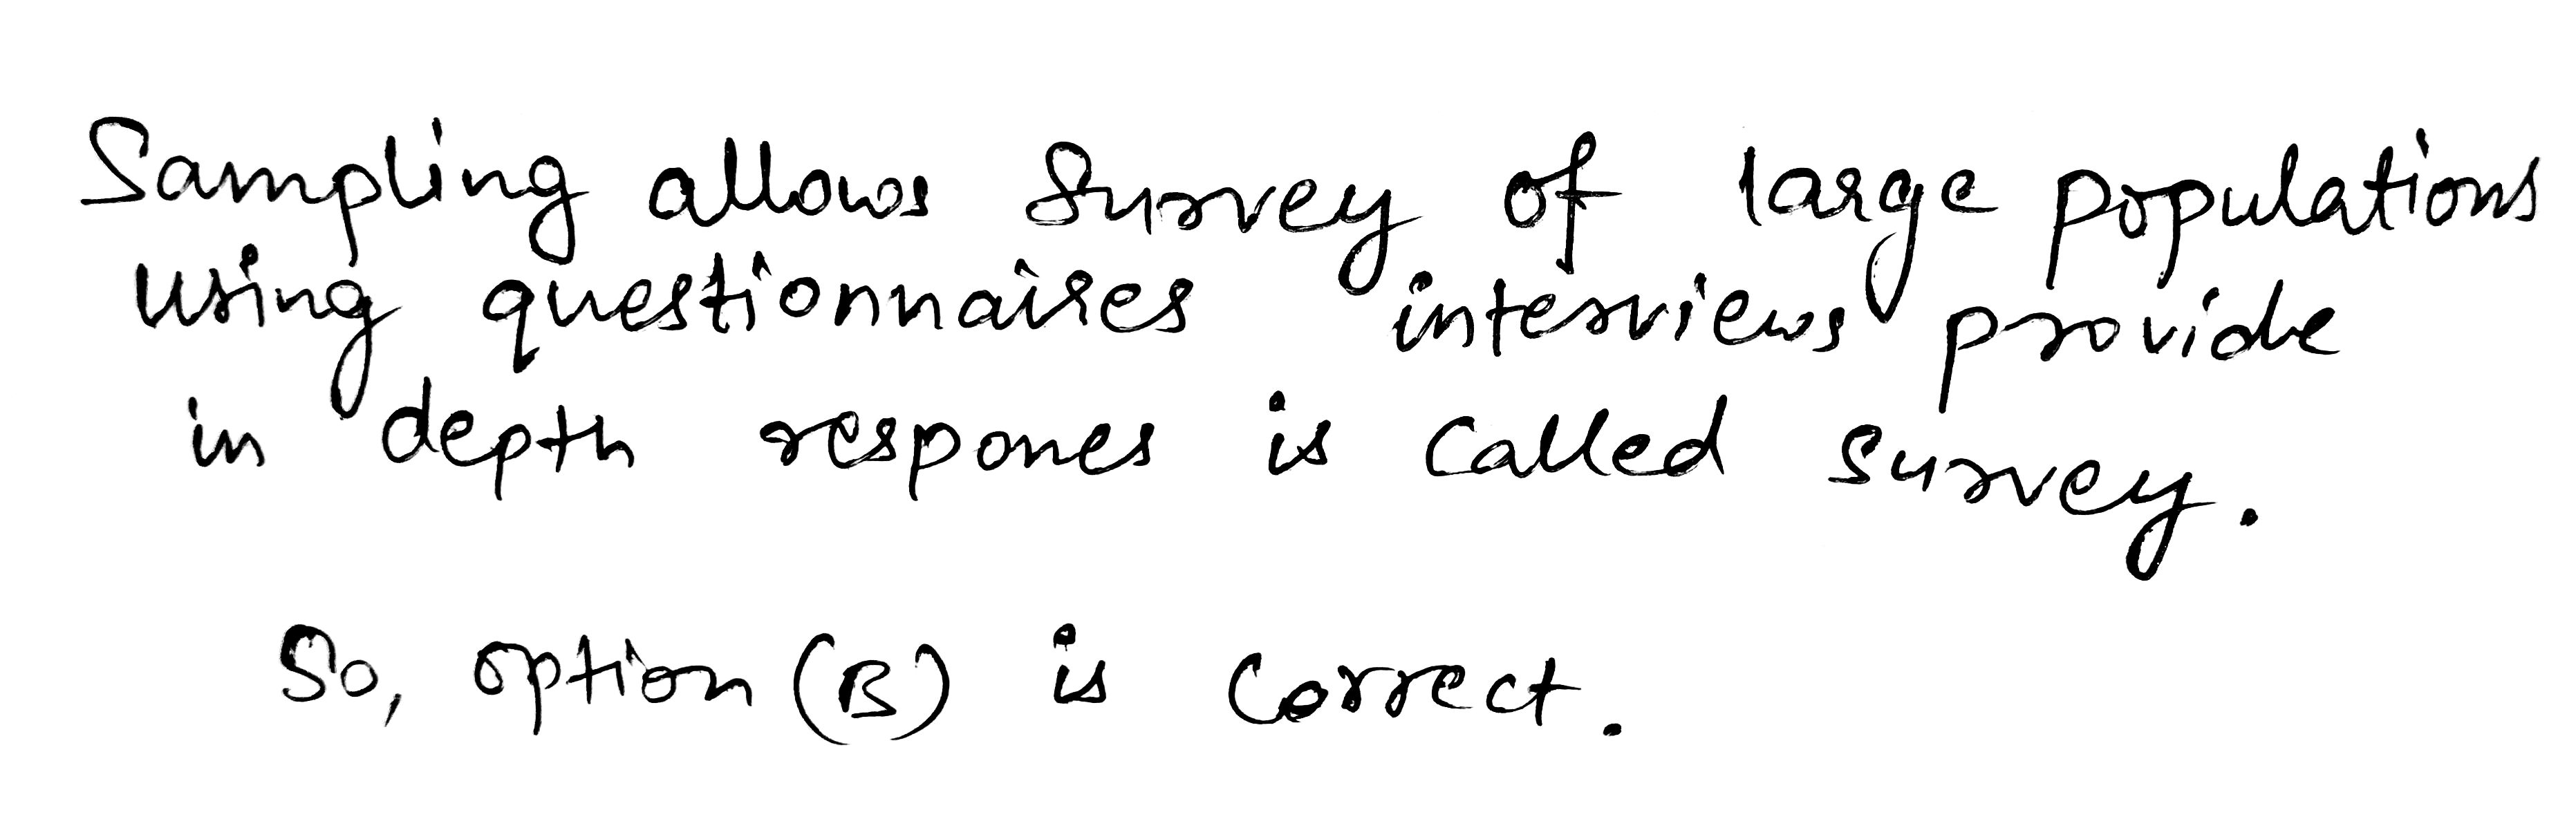 Sampling allows Survey of large populations
using questionnaires interviews provide
in depth respones is called survey.
So, option (B) is correct.